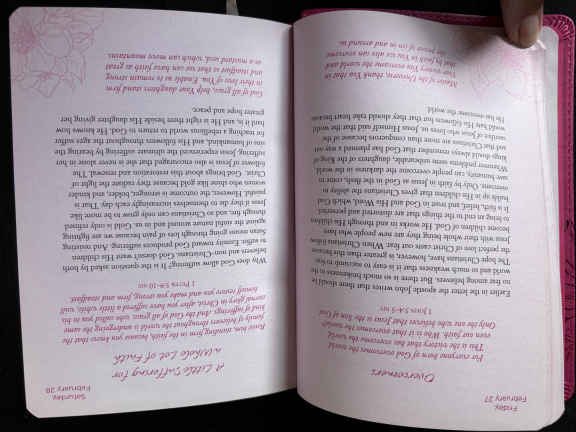 Friday,
February 27
Overcomers
For everyone born of God overcomes the world.
This is the victory that has overcome the world,
even our faith. Who is it that overcomes the world?
Only the one who believes that Jesus is the Son of God.
1 John 5:4-5 NIV
Earlier in the letter the apostle John writes that there should be
no fear among believers. But there is so much brokenness in the
world and so much weakness that it is easy to succumb to fear.
The hope Christians have, however, is greater than fear because
the perfect love of Christ casts out fear. When Christians follow
Jesus with their whole being they are now people who have
the power of God. He works in and through His children
to bring an end to the things that are distorted and perverted.
It is faith, belief, and trust in God and His Word, which God
builds up in His children that gives Christians the ability to
overcome. Only by faith in Jesus as God in the flesh, come to
save humanity, can people overcome the darkness in the world.
Whatever problems seem unbearable, daughters of the King of
kings should always remember that God has planned a way out
and that Christians are more than conquerors because of the
works of Jesus who loves us. Jesus Himself said that the world
would hate His followers but that they should take heart because
He has overcome the world.
Master of the Universe, thank You that in
Your victory You overcame the world and
that by faith in You we can also overcome
the power of sin in us.
Saturday,
February 28
A Little Suffering for
a Whole Lot of Faith
Resist him, standing firm in the faith, because you know that the
family of believers throughout the world is undergoing the same
kind of sufferings. And the God of all grace, who called you to his
eternal glory in Christ, after you have suffered a little while, will
himself restore you and make you strong, firm and steadfast.
1 Peter 5:9-10 NIV
Why does God allow suffering? It is the question asked by both
believers and non-Christians. God doesn't want His children
to suffer. Enmity toward God produces suffering. And resisting
Satan means going through real pain because we are fighting
against the sinful nature around and in us. Gold is only refined
through fire, and so Christians can only grow to be more like
Jesus if they die to themselves increasingly each day. That is
painful. However, the outcome is stronger, bolder, and kinder
women who shine like gold because they radiate the light of
Christ. God brings about this restoration and renewal. The
follower of Jesus is also encouraged that she is never alone in her
suffering. Jesus experienced the ultimate suffering bearing the
sins of humankind, and His followers throughout the ages suffer
for teaching a rebellious world to return to God. He knows how
hard it is, and He is right there beside His daughter giving her
greater hope and peace.
God of all grace, help Your daughters stand firm
in their love of You. Enable us to remain strong
and steadfast so that we can have faith as great
as a mustard seed, which can move mountains.